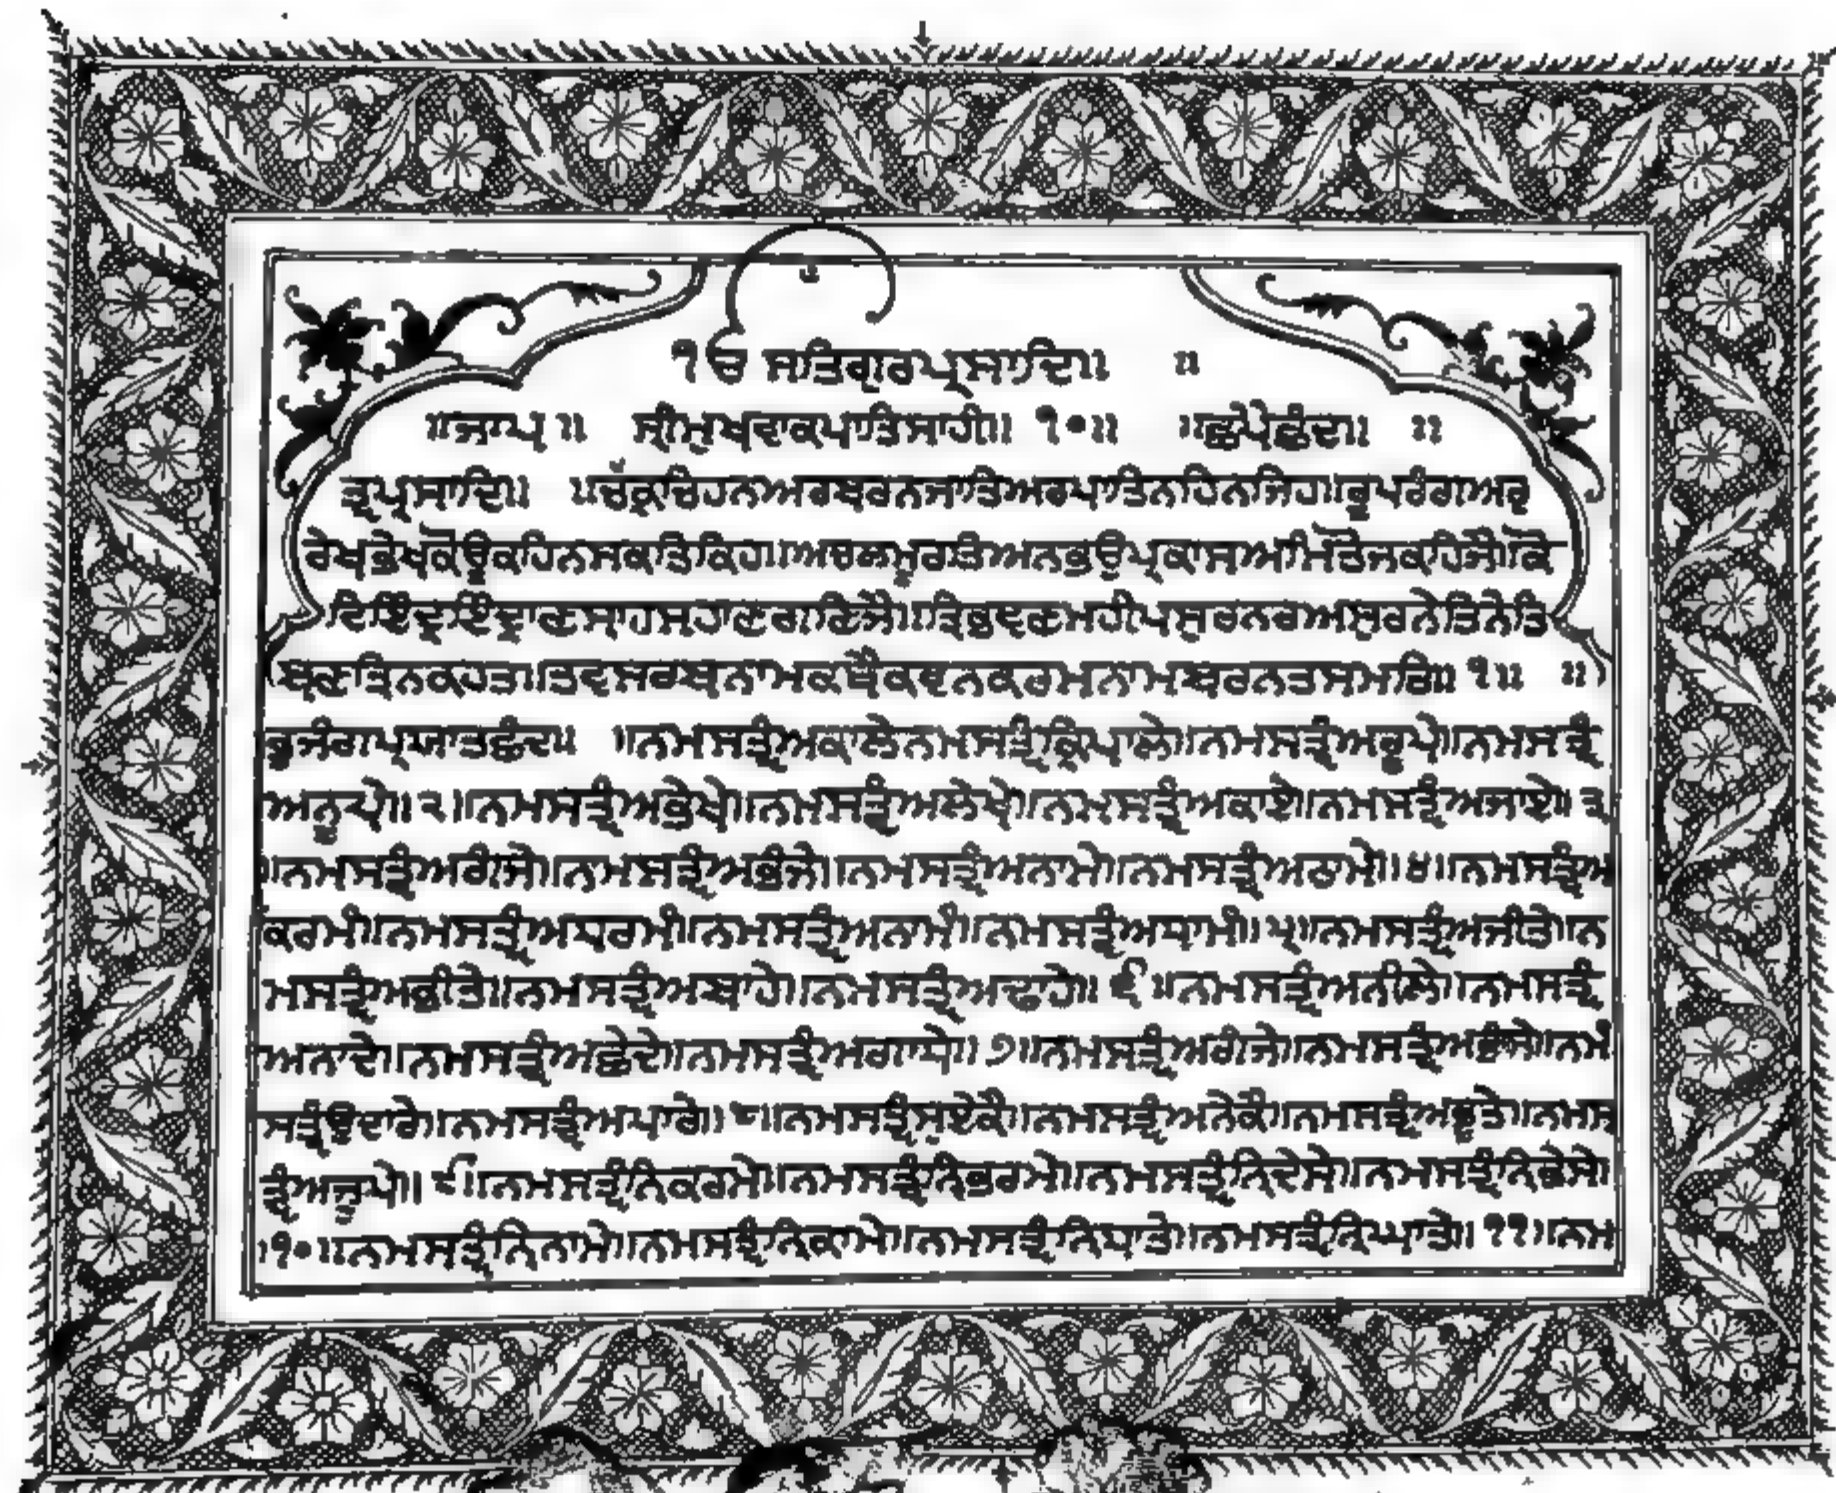 ੴ ਸਤਿਗੁਰਪ੍ਰਸਾਦਿ॥ ॥
॥ਜਾਪੁ॥ ਸ੍ਰੀਮੁਖਵਾਕਪਾਤਿਸਾਹੀ॥ ੧੦॥ ॥ਛਪੈਛੰਦ॥ ॥
ਤ੍ਵਪ੍ਰਸਾਦਿ॥ ॥ਚੱਕ੍ਰਚਿਹਨਅਰਬਰਨਜਾਤਿਅਰਪਾਤਿਨਹਿਨਜਿਹ॥ਰੂਪਰੰਗਅਰੁ
ਰੇਖਭੇਖਕੋਊਕਹਿਨਸਕਤਿਕਿਹ॥ਅਚਲਮੂਰਤਿਅਨਭਉਪ੍ਰਕਾਸਅਮਿਤੋਜਕਹਿਜੈ॥ਕੋ
ਟਿਇੰਦ੍ਰਇੰਦ੍ਰਾਣਸਾਹਸਾਹਾਣਗਣਿਜੈ॥ਤ੍ਰਿਭਵਣਮਹੀਪਸੁਰਨਰਅਸੁਰਨੇਤਿਨੇਤਿ
ਬਣਤ੍ਰਿਨਕਹਤ॥ਤ੍ਵਸਰਬਨਾਮਕਥੈਕਵਨਕਰਮਨਾਮਬਰਨਤਸੁਮਤਿ॥੧॥ ॥
ਭੁਜੰਗਪ੍ਰਯਾਤਛੰਦ॥ ॥ਨਮਸਤ੍ਵੰਅਕਾਲੇ॥ਨਮਸਤ੍ਵੰਕ੍ਰਿਪਾਲੇ॥ਨਮਸਤ੍ਵੰਅਰੂਪੇ॥ਨਮਸਤ੍ਵੰ
ਅਨੂਪੇ॥੨॥ਨਮਸਤ੍ਵੰਅਭੇਖੇ॥ਨਮਸਤ੍ਵੰਅਲੇਖੇ॥ਨਮਸਤ੍ਵੰਅਕਾਏ॥ਨਮਸਤ੍ਵੰਅਜਾਏ॥੩
॥ਨਮਸਤ੍ਵੰਅਗੰਜੇ॥ਨਮਸਤ੍ਵੰਅਭੰਜੇ॥ਨਮਸਤ੍ਵੰਅਨਾਮੇ॥ਨਮਸਤ੍ਵੰਅਠਾਮੇ॥੪॥ਨਮਸਤ੍ਵੰਅ
ਕਰਮੰ॥ਨਮਸਤ੍ਵੰਅਧਰਮੰ॥ਨਮਸਤ੍ਵੰਅਨਾਮੰ॥ਨਮਸਤ੍ਵੰਅਧਾਮੰ॥੫॥ਨਮਸਤ੍ਵੰਅਜੀਤੇ॥ਨ
ਮਸਤ੍ਵੰਅਭੀਤੇ॥ਨਮਸਤ੍ਵੰਅਬਾਹੇ॥ਨਮਸਤ੍ਵੰਅਢਾਹੇ॥੬॥ਨਮਸਤ੍ਵੰਅਨੀਲੇ॥ਨਮਸਤ੍ਵੰ
ਅਨਾਦੇ॥ਨਮਸਤ੍ਵੰਅਛੇਦੇ॥ਨਮਸਤ੍ਵੰਅਗਾਧੇ॥੭॥ਨਮਸਤ੍ਵੰਅਗੰਜੇ॥ਨਮਸਤ੍ਵੰਅਭੰਜੇ॥ਨਮ
ਸਤ੍ਵੰਉਦਾਰੇ॥ਨਮਸਤ੍ਵੰਅਪਾਰੇ॥੮॥ਨਮਸਤ੍ਵੰਸੁਏਕੈ॥ਨਮਸਤ੍ਵੰਅਨੇਕੈ॥ਨਮਸਤ੍ਵੰਅਭੂਤੇ॥ਨਮਸ
ਤ੍ਵੰਅਜੂਪੇ॥੯॥ਨਮਸਤ੍ਵੰਨ੍ਰਿਕਰਮੇ॥ਨਮਸਤ੍ਵੰਨ੍ਰਿਭਰਮੇ॥ਨਮਸਤ੍ਵੰਨ੍ਰਿਦੇਸੇ॥ਨਮਸਤ੍ਵੰਨ੍ਰਿਭੇਸੇ॥
੧੦॥ਨਮਸਤ੍ਵੰਨ੍ਰਿਨਾਮੇ॥ਨਮਸਤ੍ਵੰਨ੍ਰਿਕਾਮੇ॥ਨਮਸਤ੍ਵੰਨ੍ਰਿਧਾਤੇ॥ਨਮਸਤ੍ਵੰਨ੍ਰਿਘਾਤੇ॥੧੧॥ਨਮ